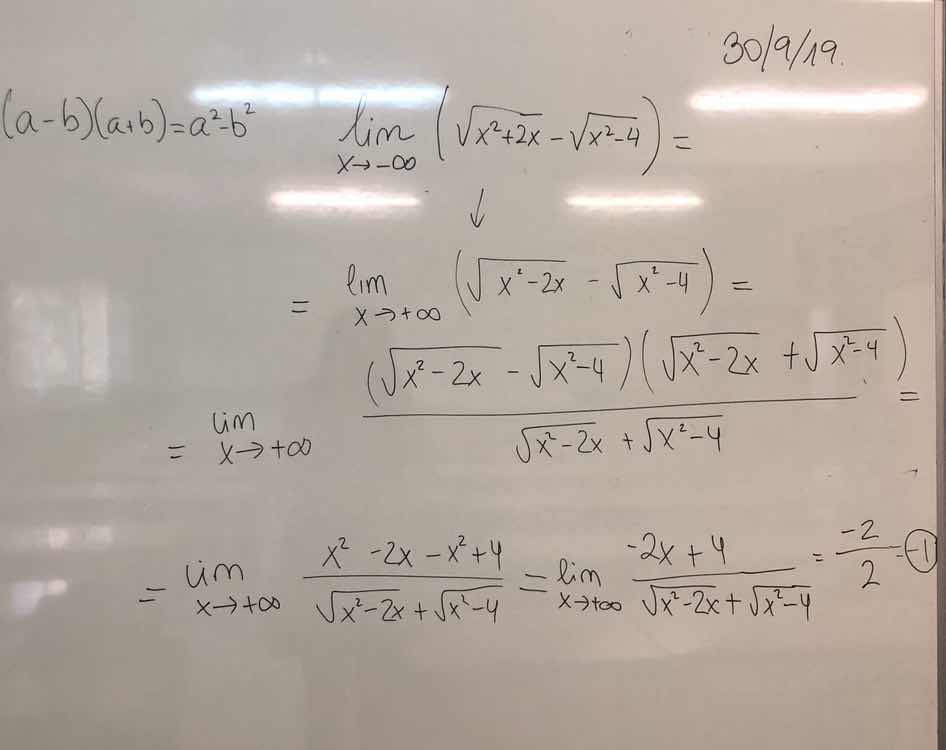 30/9/19.
(a-b)(a+b)=a²-b²
lim x→-∞ (√(x²+2x) - √(x²-4)) =
↓
= lim x→+∞ (√(x²-2x) - √(x²-4)) =
= lim x→+∞ (√(x²-2x) - √(x²-4))(√(x²-2x) + √(x²-4)) / (√(x²-2x) + √(x²-4)) =
= lim x→+∞ (x²-2x-x²+4) / (√(x²-2x) + √(x²-4)) = lim x→+∞ (-2x+4) / (√(x²-2x) + √(x²-4)) = -2/2 = -1